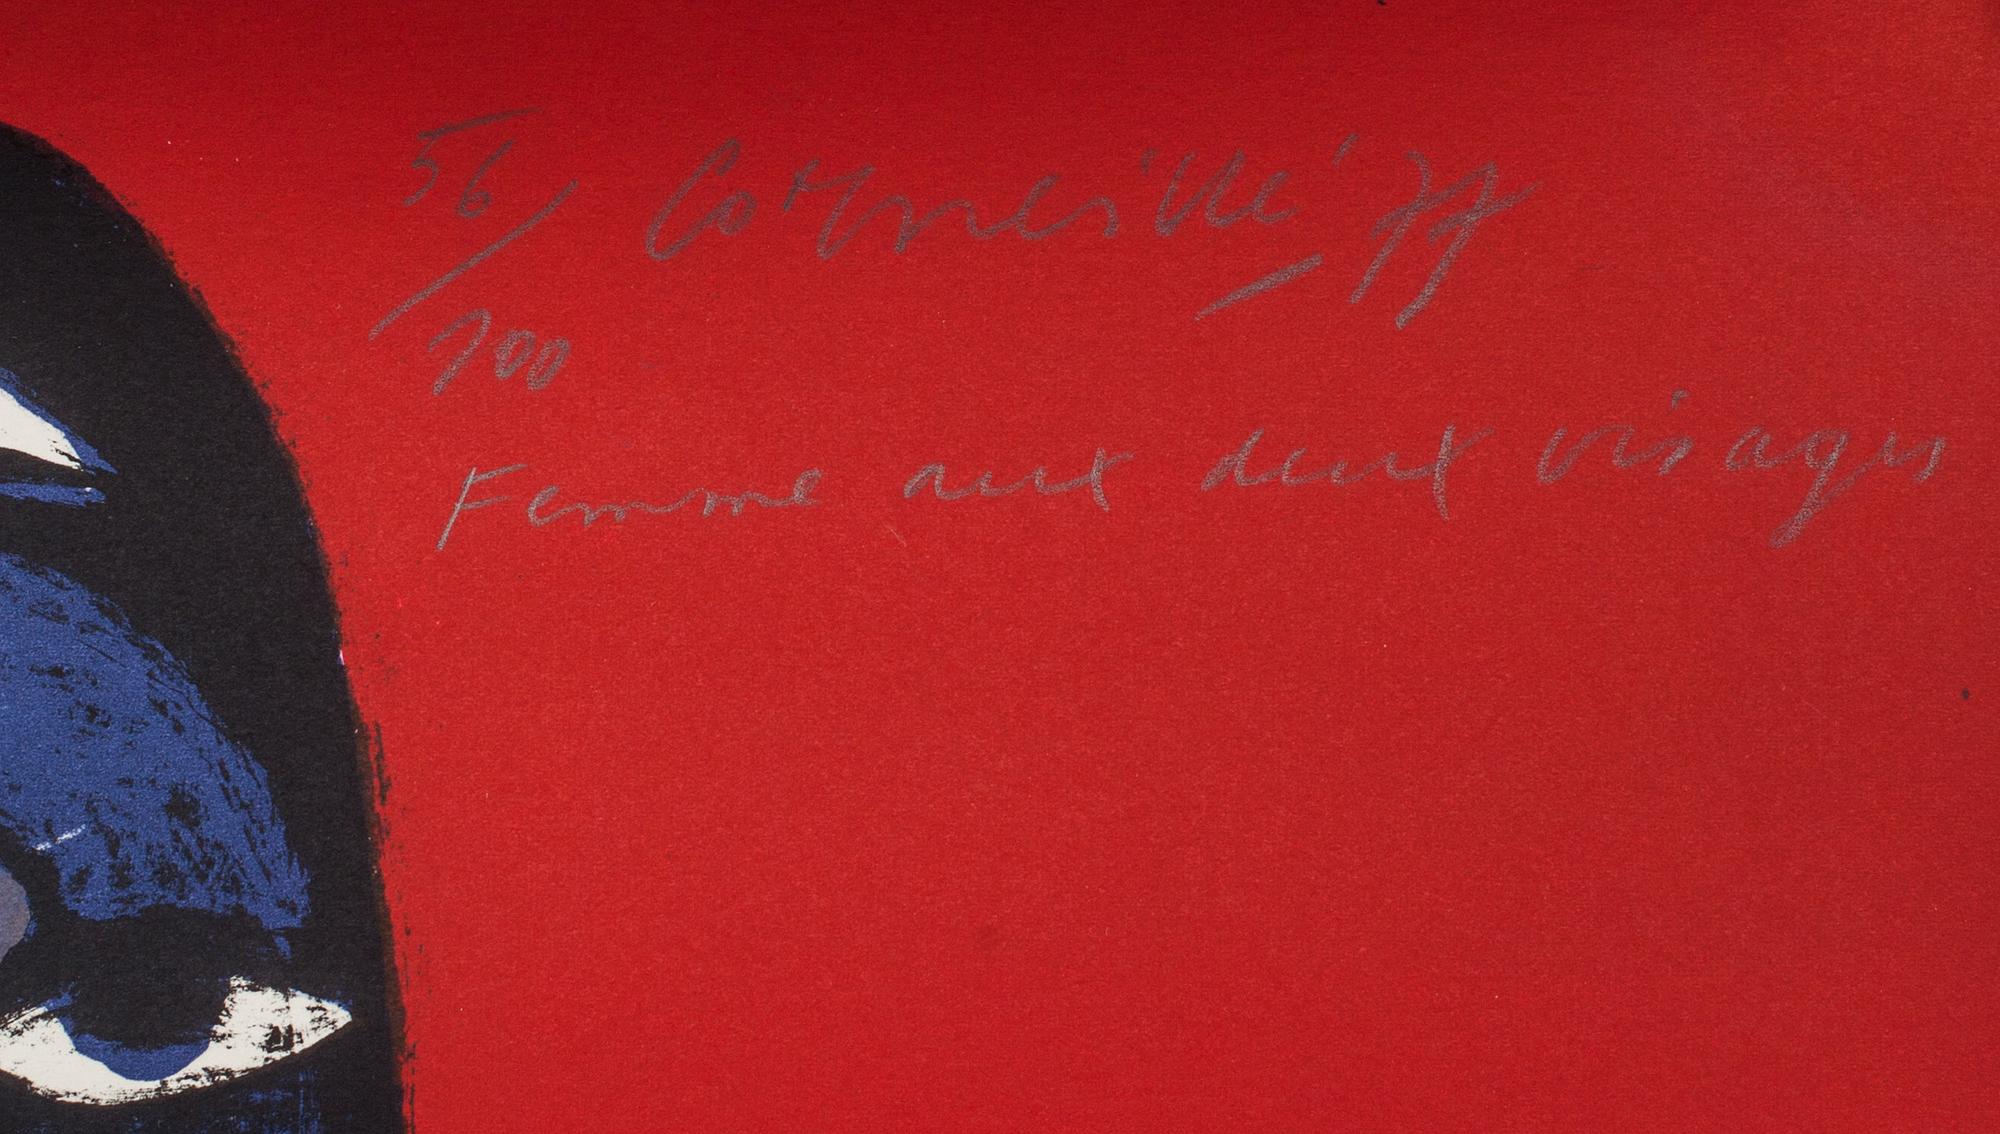 56/100 Corneille '77
Femme aux deux visages